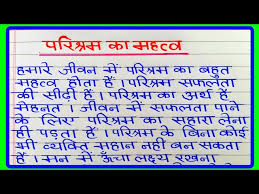 परिश्रम का महत्व
हमारे जीवन में परिश्रम का बहुत
महत्व होता हैं । परिश्रम सफलता
की सीढ़ी हैं । परिश्रम का अर्थ हैं
मेहनत । जीवन में सफलता पाने
के लिए परिश्रम का सहारा लेना
ही पड़ता हैं । परिश्रम के बिना कोई
भी व्यक्ति महान नहीं बन सकता
हैं । मन में ऊँचा लक्ष्य रखना